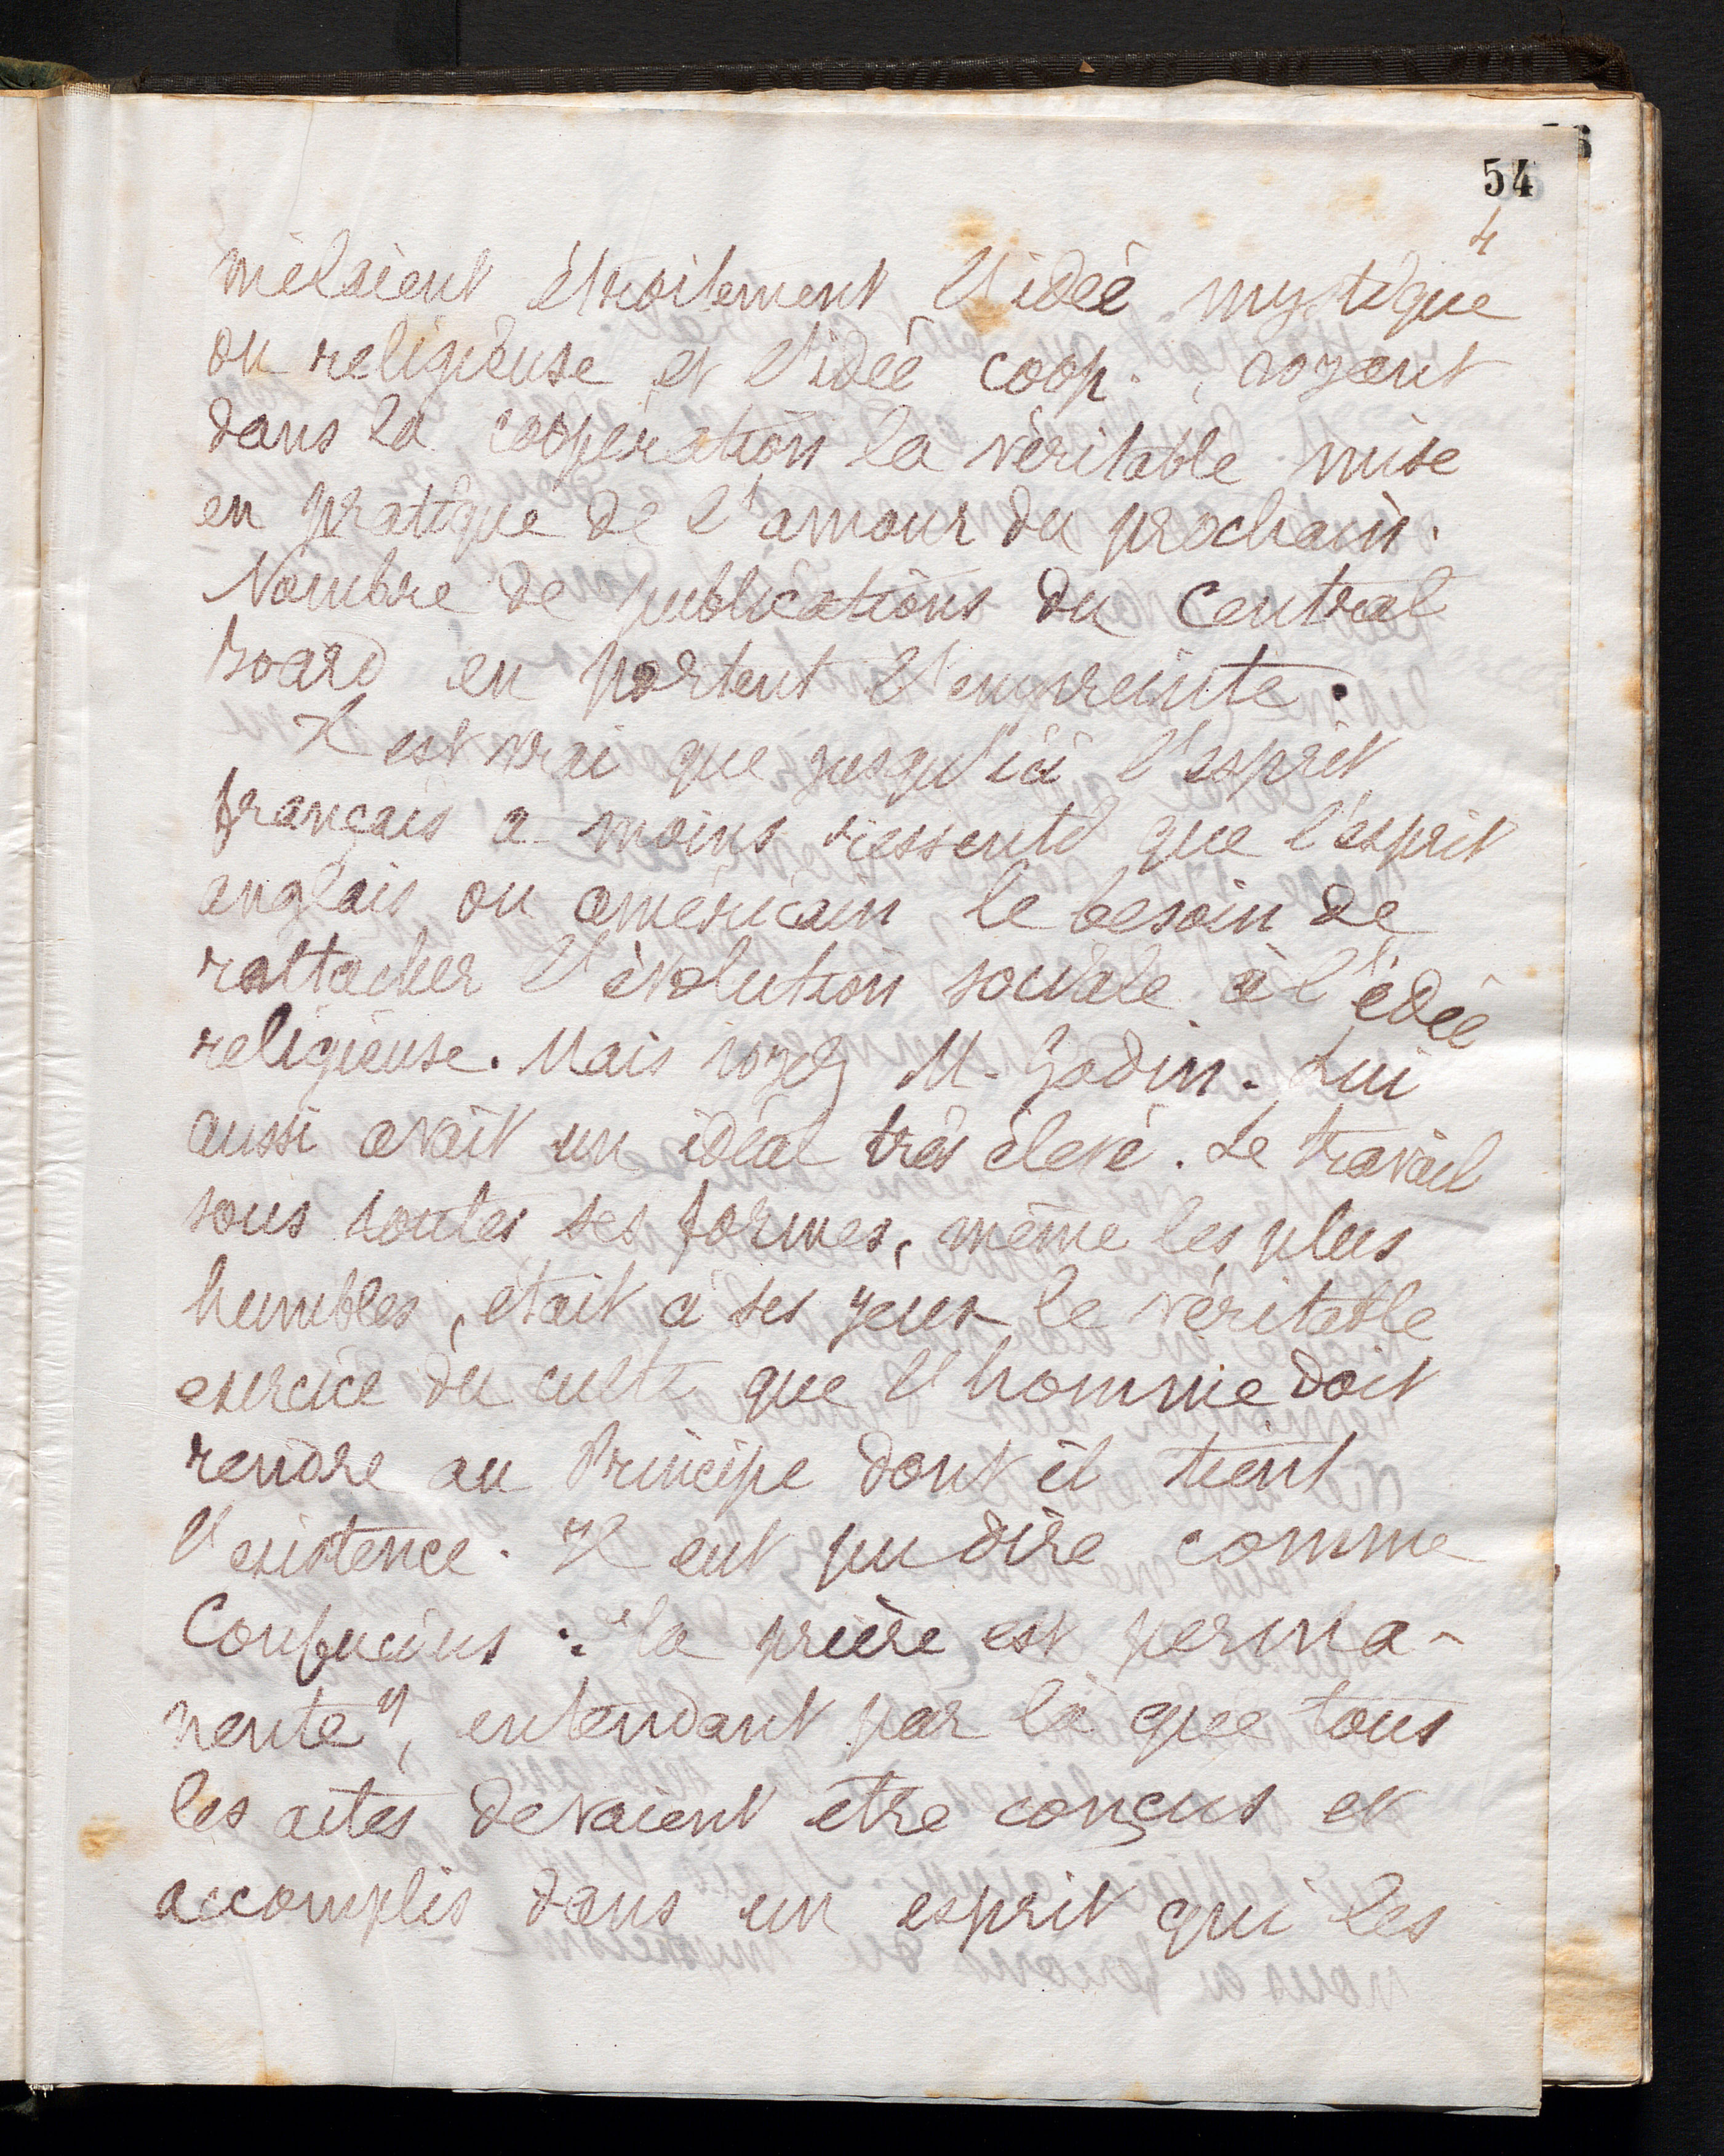 54
4
mêlaient étroitement l'idée mystique
ou religieuse et l'idée coop., voyant
dans la coopération la véritable mise
en pratique de l'amour du prochain.
Nombre de publications du Central
board en portent l'empreinte.
Il est vrai que jusqu'ici l'esprit
français a moins ressenti que l'esprit
anglais ou américain le besoin de
rattacher l'évolution sociale à l'idée
religieuse. Mais voyez M. Godin. Lui
aussi avait un idéal très élevé. Le travail
sous toutes ses formes, même les plus
humbles, était à ses yeux le véritable
exercice du culte que l'homme doit
rendre au Principe dont il tient
l'existence. Il eut pu dire comme
Confucius : "la prière est perma-
nente", entendant par là que tous
les actes devaient être conçus et
accomplis dans un esprit qui les